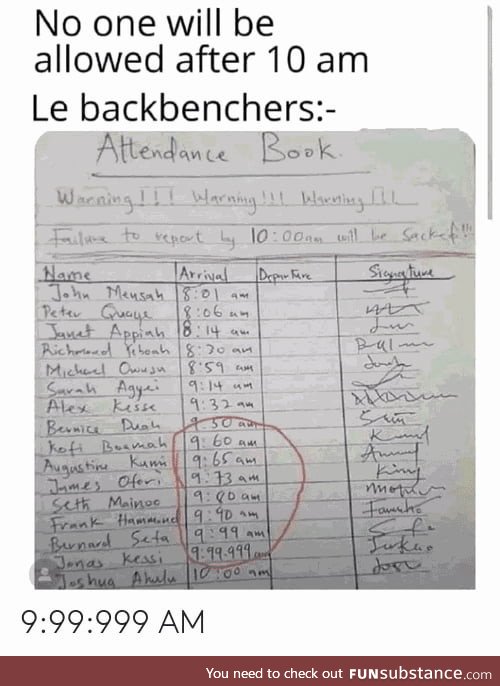 No one will be
allowed after 10 am
Le backbenchers:-
Attendance Book.
Warning!!! Warning!!! Warning!!!
Failure to report by 10:00am will be Sacked!!!
Name Arrival Departure Signature
John Mensah 8:01 am
Peter Quaye 8:06 am
Janet Appiah 8:14 am
Richmond Yeboah 8:30 am
Michael Owusu 8:59 am
Sarah Agyei 9:14 am
Alex Kesse 9:32 am
Bernice Duah 9:50 am
Kofi Boamah 9:60 am
Augustine Kumi 9:65 am
James Ofori 9:73 am
Seth Mainoo 9:80 am
Frank Hammond 9:90 am
Bernard Sefa 9:99 am
Jonas Kessi 9:99.999 am
Joshua Ahulu 10:00 am
9:99:999 AM
You need to check out FUNsubstance.com